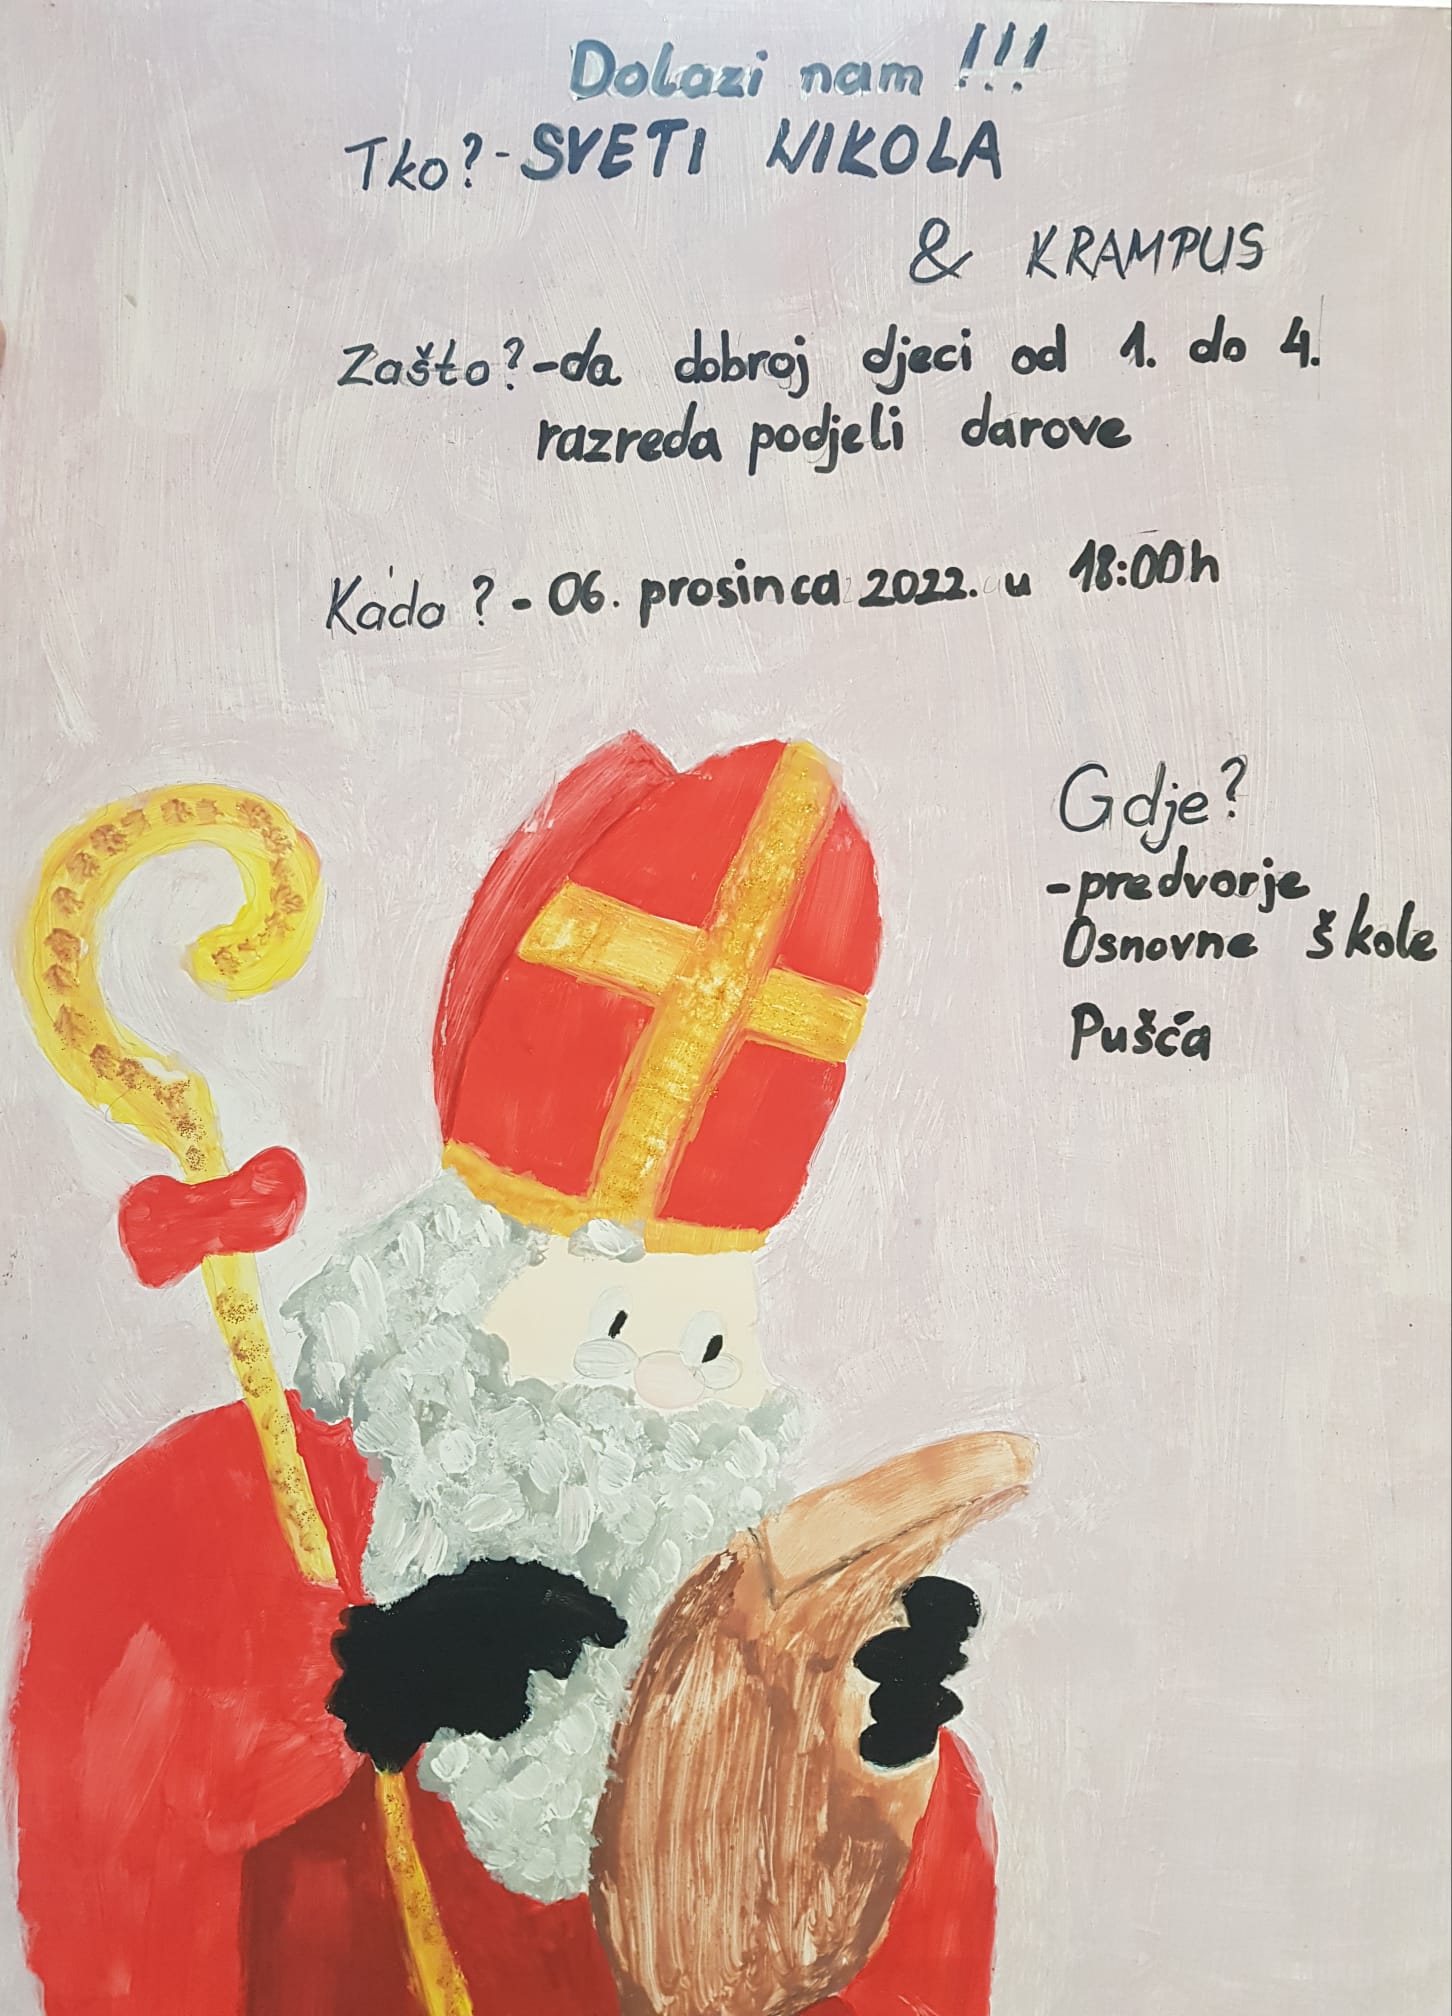 Dolazi nam !!!
Tko? - SVETI NIKOLA
& KRAMPUS
Zašto? - da dobroj djeci od 1. do 4.
razreda podjeli darove
Kada ? - 06. prosinca 2022. u 18:00h
Gdje?
- predvorje
Osnovne škole
Pušća